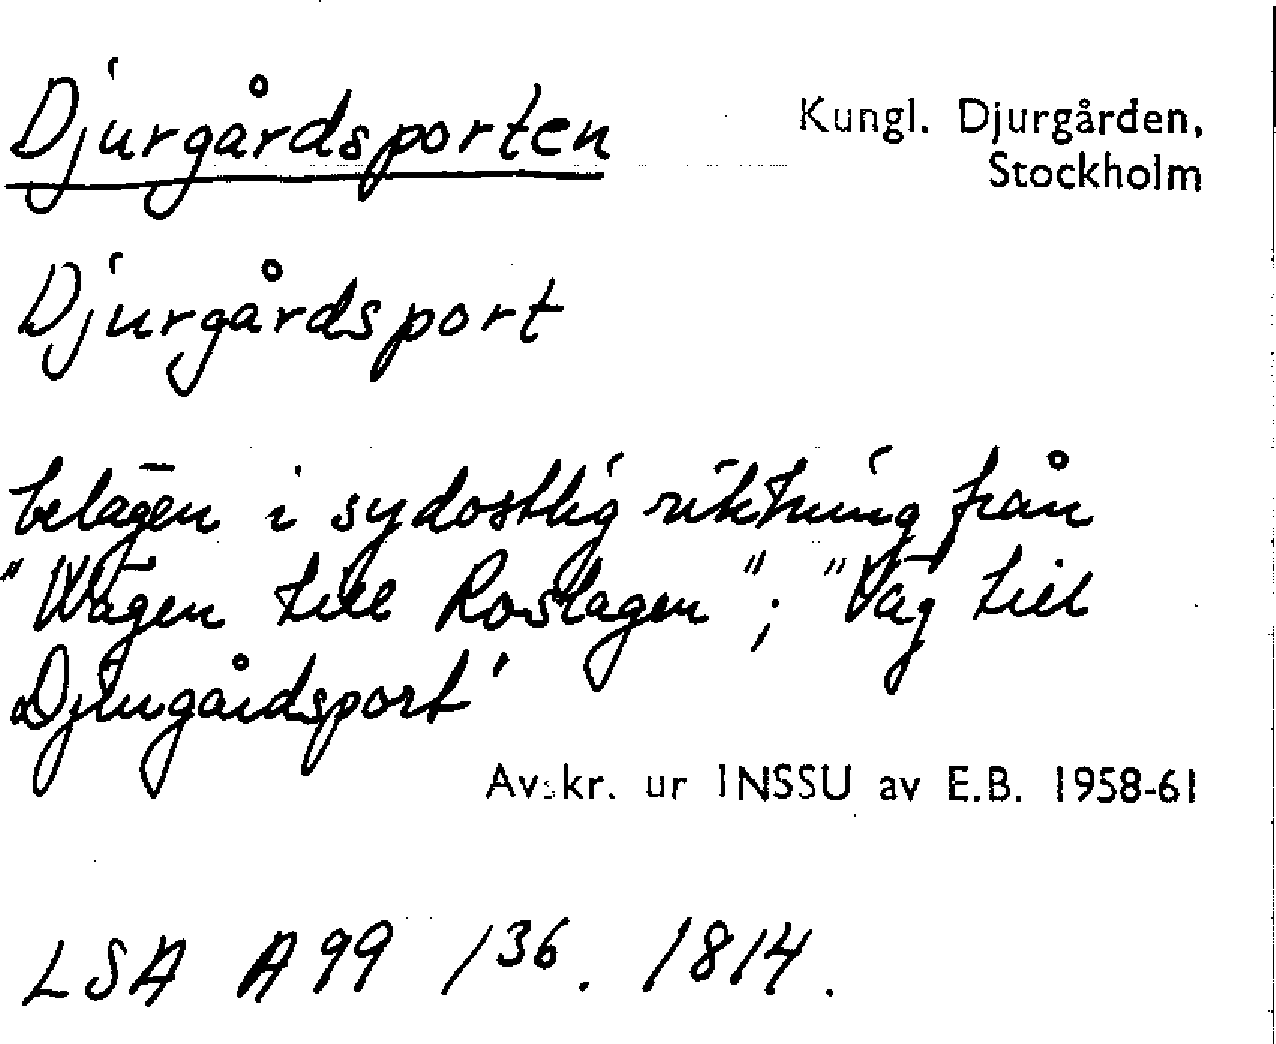 Djurgårdsporten
Kungl. Djurgården,
Stockholm
Djurgårdsport
belägen i sydostlig riktning från
"Wägen till Roslagen"; "Väg till
Djurgårdsport"
Avskr. ur INSSU av E.B. 1958-61
LSA A 99 /36. 1814.